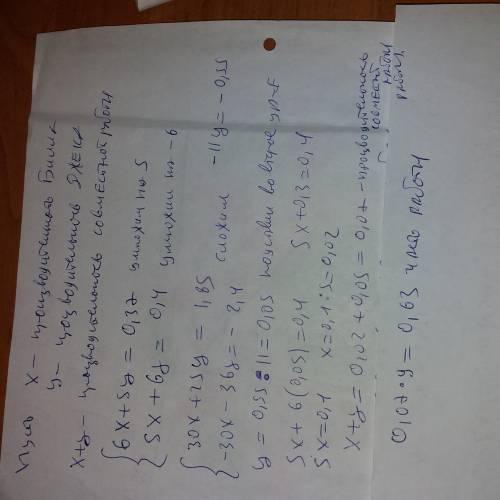 Пусть x – производительность Билла
y – производительность Джека
x+y – производительность совместной работы
{ 6x+5y = 0,37 умножим на 5
{ 5x+6y = 0,4 умножим на -6
{ 30x+25y = 1,85
{ -30x-36y = -2,4 сложим -11y = -0,55
y = 0,55:11 = 0,05 подставим во второе ур-е
5x+6(0,05)=0,4 5x+0,3=0,4
5x=0,1 x=0,1:5=0,02
x+y = 0,02+0,05 = 0,07 – производительность совместной работы
0,07·9 = 0,63 работы